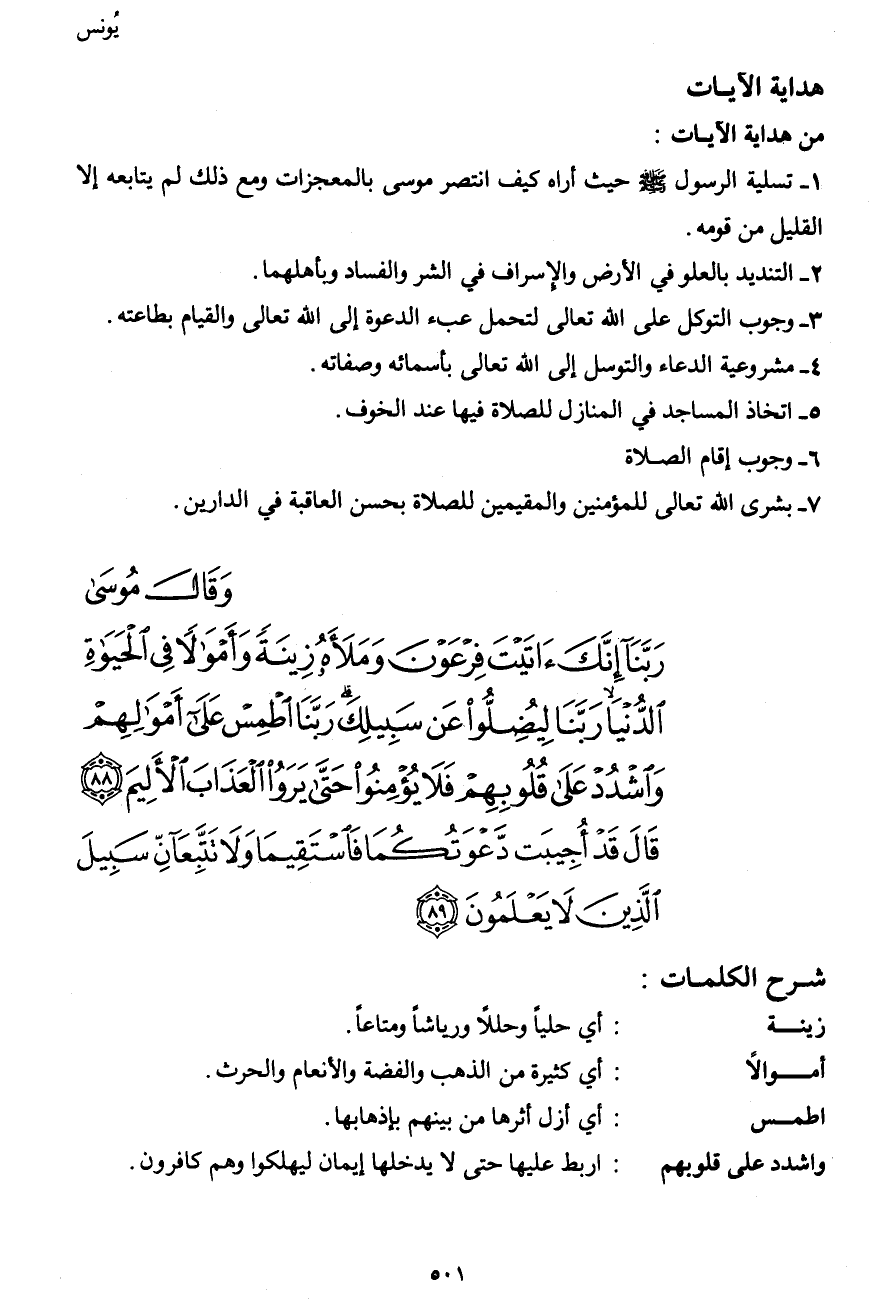 يُونس
هداية الآيـات
من هداية الآيـات :
١ـ تسلية الرسول ﷺ حيث أراه كيف انتصر موسى بالمعجزات ومع ذلك لم يتابعه إلا
القليل من قومه .
٢ـ التنديد بالعلو في الأرض والإسراف في الشر والفساد وبأهلهما .
٣ـ وجوب التوكل على الله تعالى لتحمل عبء الدعوة إلى الله تعالى والقيام بطاعته .
٤ـ مشروعية الدعاء والتوسل إلى الله تعالى بأسمائه وصفاته .
٥ـ اتخاذ المساجد في المنازل للصلاة فيها عند الخوف .
٦ـ وجوب إقام الصـلاة
٧ـ بشرى الله تعالى للمؤمنين والمقيمين للصلاة بحسن العاقبة في الدارين .
وَقَالَ مُوسَىٰ
رَبَّنَآ إِنَّكَ ءَاتَيْتَ فِرْعَوْنَ وَمَلَأَهُۥ زِينَةً وَأَمْوَٰلًا فِى ٱلْحَيَوٰةِ
ٱلدُّنْيَا ۙ رَبَّنَا لِيُضِلُّوا۟ عَن سَبِيلِكَ ۖ رَبَّنَا ٱطْمِسْ عَلَىٰٓ أَمْوَٰلِهِمْ
وَٱشْدُدْ عَلَىٰ قُلُوبِهِمْ فَلَا يُؤْمِنُوا۟ حَتَّىٰ يَرَوُا۟ ٱلْعَذَابَ ٱلْأَلِيمَ ٨٨
قَالَ قَدْ أُجِيبَت دَّعْوَتُكُمَا فَٱسْتَقِيمَا وَلَا تَتَّبِعَآنِّ سَبِيلَ
ٱلَّذِينَ لَا يَعْلَمُونَ ٨٩
شـرح الكلمـات :
زينـــة : أي حلياً وحللاً ورياشاً ومتاعاً .
أمـــوالاً : أي كثيرة من الذهب والفضة والأنعام والحرث .
اطمـــس : أي أزل أثرها من بينهم بإذهابها .
واشدد على قلوبهم : اربط عليها حتى لا يدخلها إيمان ليهلكوا وهم كافرون .
٥٠١